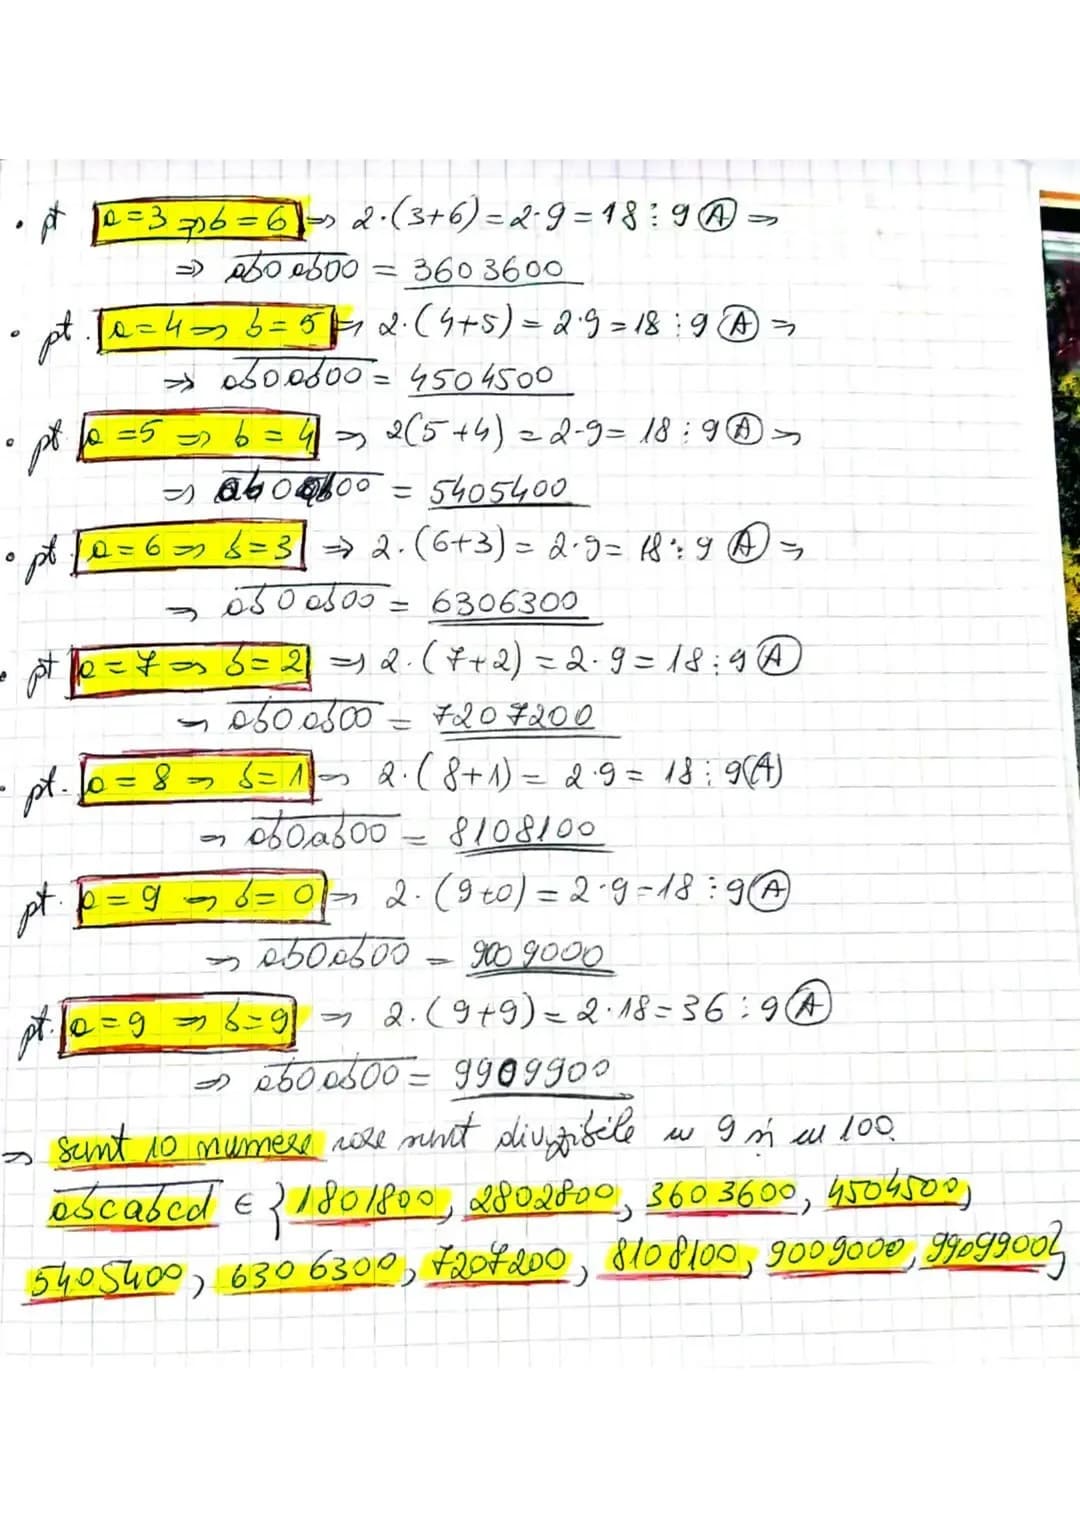 • pt a=3 ⇒ b=6 ⇒ 2·(3+6)=2·9=18⋮9 Ⓐ ⇒
⇒ ab0ab00 = 3603600
• pt. a=4 ⇒ b=5 ⇒ 2·(4+5)=2·9=18⋮9 Ⓐ ⇒
⇒ ab0ab00 = 4504500
• pt a=5 ⇒ b=4 ⇒ 2(5+4)=2·9=18⋮9 Ⓐ ⇒
⇒ ab0ab00 = 5405400
• pt. a=6 ⇒ b=3 ⇒ 2·(6+3)=2·9=18⋮9 Ⓐ ⇒
⇒ ab0ab00 = 6306300
• pt a=7 ⇒ b=2 ⇒ 2·(7+2)=2·9=18⋮9 Ⓐ
⇒ ab0ab00 = 7207200
• pt. a=8 ⇒ b=1 ⇒ 2·(8+1)=2·9=18⋮9(A)
⇒ ab0ab00 = 8108100
pt. a=9 ⇒ b=0 ⇒ 2·(9+0)=2·9=18⋮9 Ⓐ
⇒ ab0ab00 = 9009000
pt. a=9 ⇒ b=9 ⇒ 2·(9+9)=2·18=36⋮9 Ⓐ
⇒ ab0ab00 = 9909900
⇒ sunt 10 numere care sunt divizibile cu 9 și cu 100.
abcabcd ∈ {1801800, 2802800, 3603600, 4504500,
5405400, 6306300, 7207200, 8108100, 9009000, 9909900}